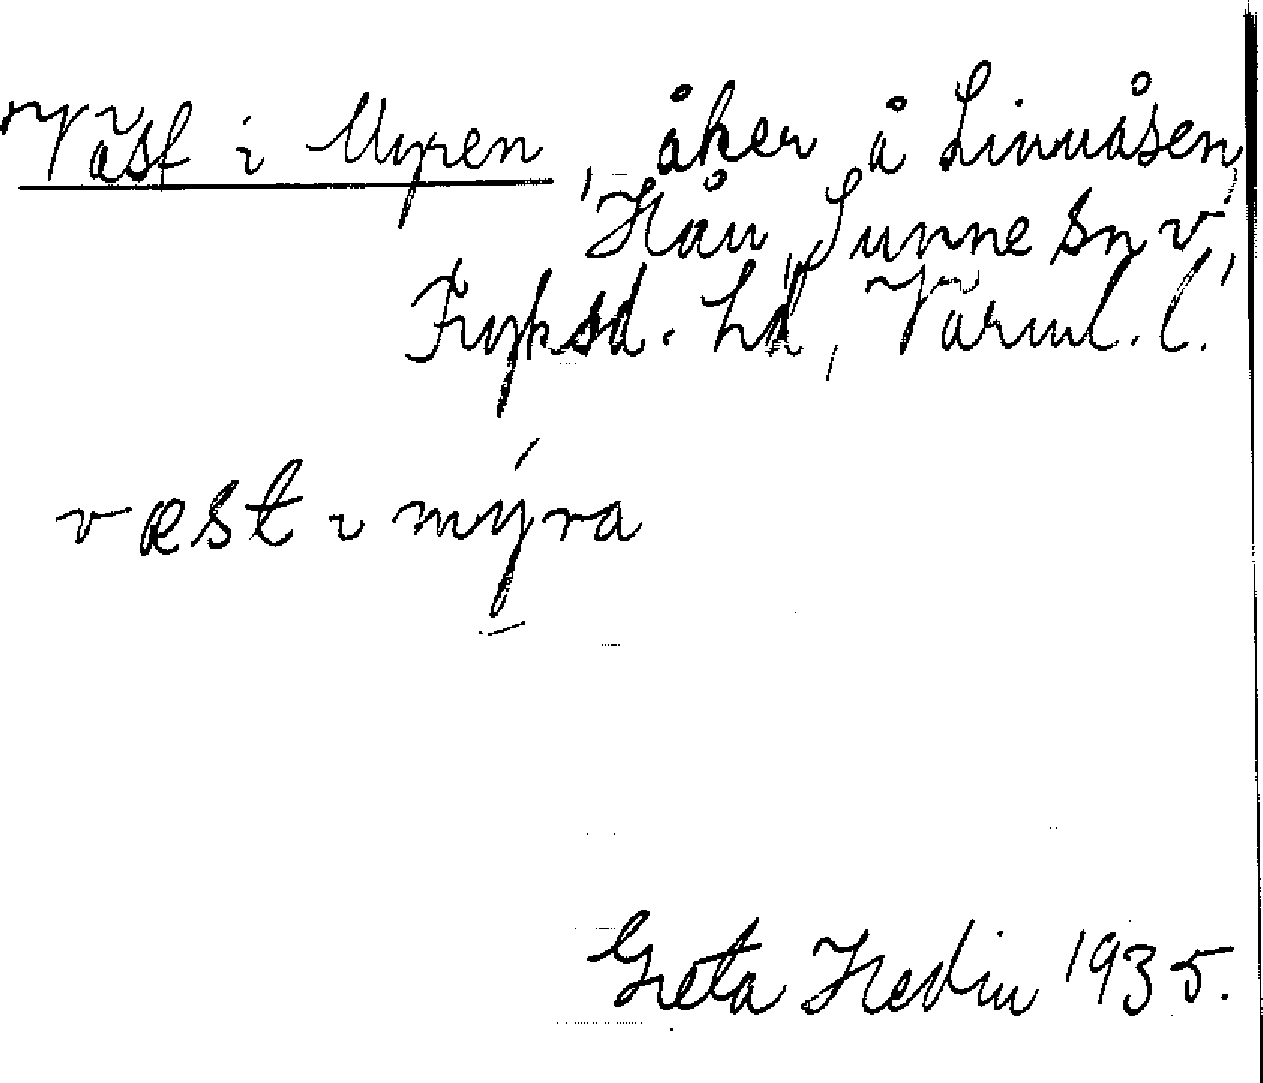 Väst i Myren, åker å Linnåsen,
Hån, Sunne sn v,
Fryksd. hd, Värml. l.
væst ɩ mýra
Greta Hedin 1935.